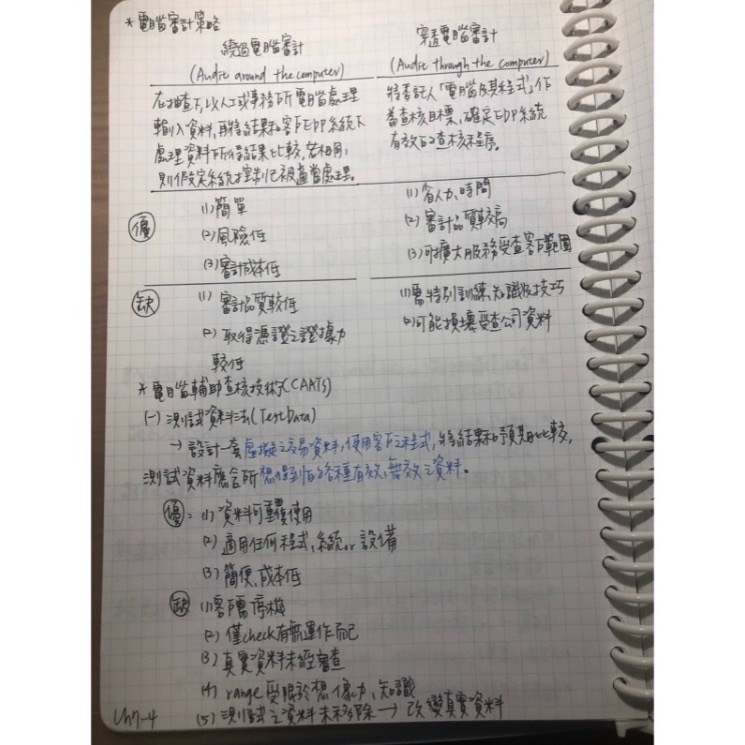 * 電腦審計策略
繞過電腦審計
(Audit around the computer)
在抽查下,以人工或事務所電腦處理
輸入資料,再將結果和客戶EDP系統下
處理資料所得結果比較,若相同,
則假定系統控制已被適當處理。
穿透電腦審計
(Audit through the computer)
將委託人「電腦及其程式」作
審查核目標,確定EDP系統
有效的查核程序。
優
(1) 簡單
(2) 風險低
(3) 審計成本低
(1) 省人力、時間
(2) 審計品質較高
(3) 可擴大服務受查客戶範圍
缺
(1) 審計品質較低
(2) 取得憑證之證據力
較低
(1) 需特別訓練、知識及技巧
(2) 可能損壞受查公司資料
* 電腦輔助查核技術(CAATS)
(一) 測試資料法(Test Data)
→ 設計一套虛擬之交易資料,使用客戶之程式,將結果和預期比較,
測試資料應含所想得到的各種有效、無效之資料。
優: (1) 資料可重複使用
(2) 適用任何程式、系統or設備
(3) 簡便,成本低
缺 (1) 客戶需停機
(2) 僅check有無運作而已
(3) 真實資料未經審查
(4) range受限於想像力、知識
(5) 測試之資料未移除 → 改變真實資料
Ch7-4